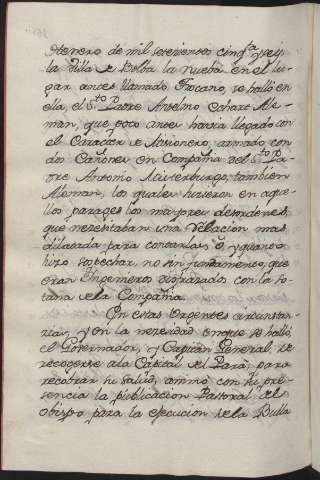 Henero de mil setecientos cinq.ta y seis,
la Villa de Bolba la nueba en el lu-
gar antes llamado Trocano, se halló en
ella, el P.e Padre Anselmo Echart Ale-
man, que poco antes havia llegado con
el Caracter de Misionero, armado con
dos Cañones en Compañia del P.e Pa-
dre Antonio Meisterburgo, tambien
Aleman, los quales hicieron en aque-
llos parages los mayores desordenes,
que necesitaban una relacion mas
dilatada para contarlas, y quando
hizo sospechar, no sin fundamento, que
eran Ingenieros disfrazados con la So-
tana de la Compañia.
En estas urgentes circunstan-
cias, y en la necesidad en que se halló
el Governador, y Capitan General, de
recogerse a la Capital del Pará, para
recobrar su salud, animó con su pre-
sencia la publicacion Pastoral del
obispo para la execucion de la Bulla